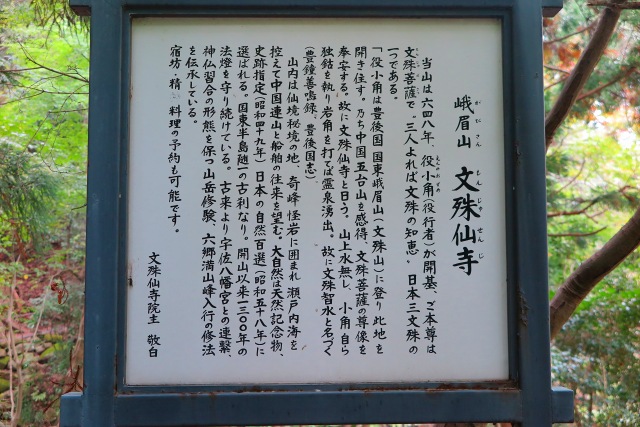 峨眉山 文殊仙寺
がびさん もんじゅせんじ
当山は六四八年、役小角(役行者)が開基、ご本尊は
えんのおずの
文殊菩薩で"三人よれば文殊の知恵"日本三文殊の
一つである。
「役小角は豊後国国東峨眉山(文殊山)に登り此地を
開き住す。乃ち中国五台山を感得、文殊菩薩の尊像を
奉安する。故に文殊仙寺と曰う。山上水無し、小角自ら
独鈷を執り岩角を打てば霊泉湧出。故に文殊智水と名づく
(豊鐘善鳴録、豊後国志)
山内は仙境秘境の地、奇峰怪岩に囲まれ瀬戸内海を
控えて中国連山と船舶の往来を望む、大自然は天然記念物、
史跡指定(昭和四十九年)日本の自然百選(昭和五十八年)に
選ばれる。国東半島随一の古刹なり。開山以来一三〇〇年の
法燈を守り続けている。古来より宇佐八幡宮との連繋、
神仏習合の形態を保つ山岳修験、六郷満山峰入行の修法
を伝承している。
宿坊・精 料理の予約も可能です。
文殊仙寺院主 敬白